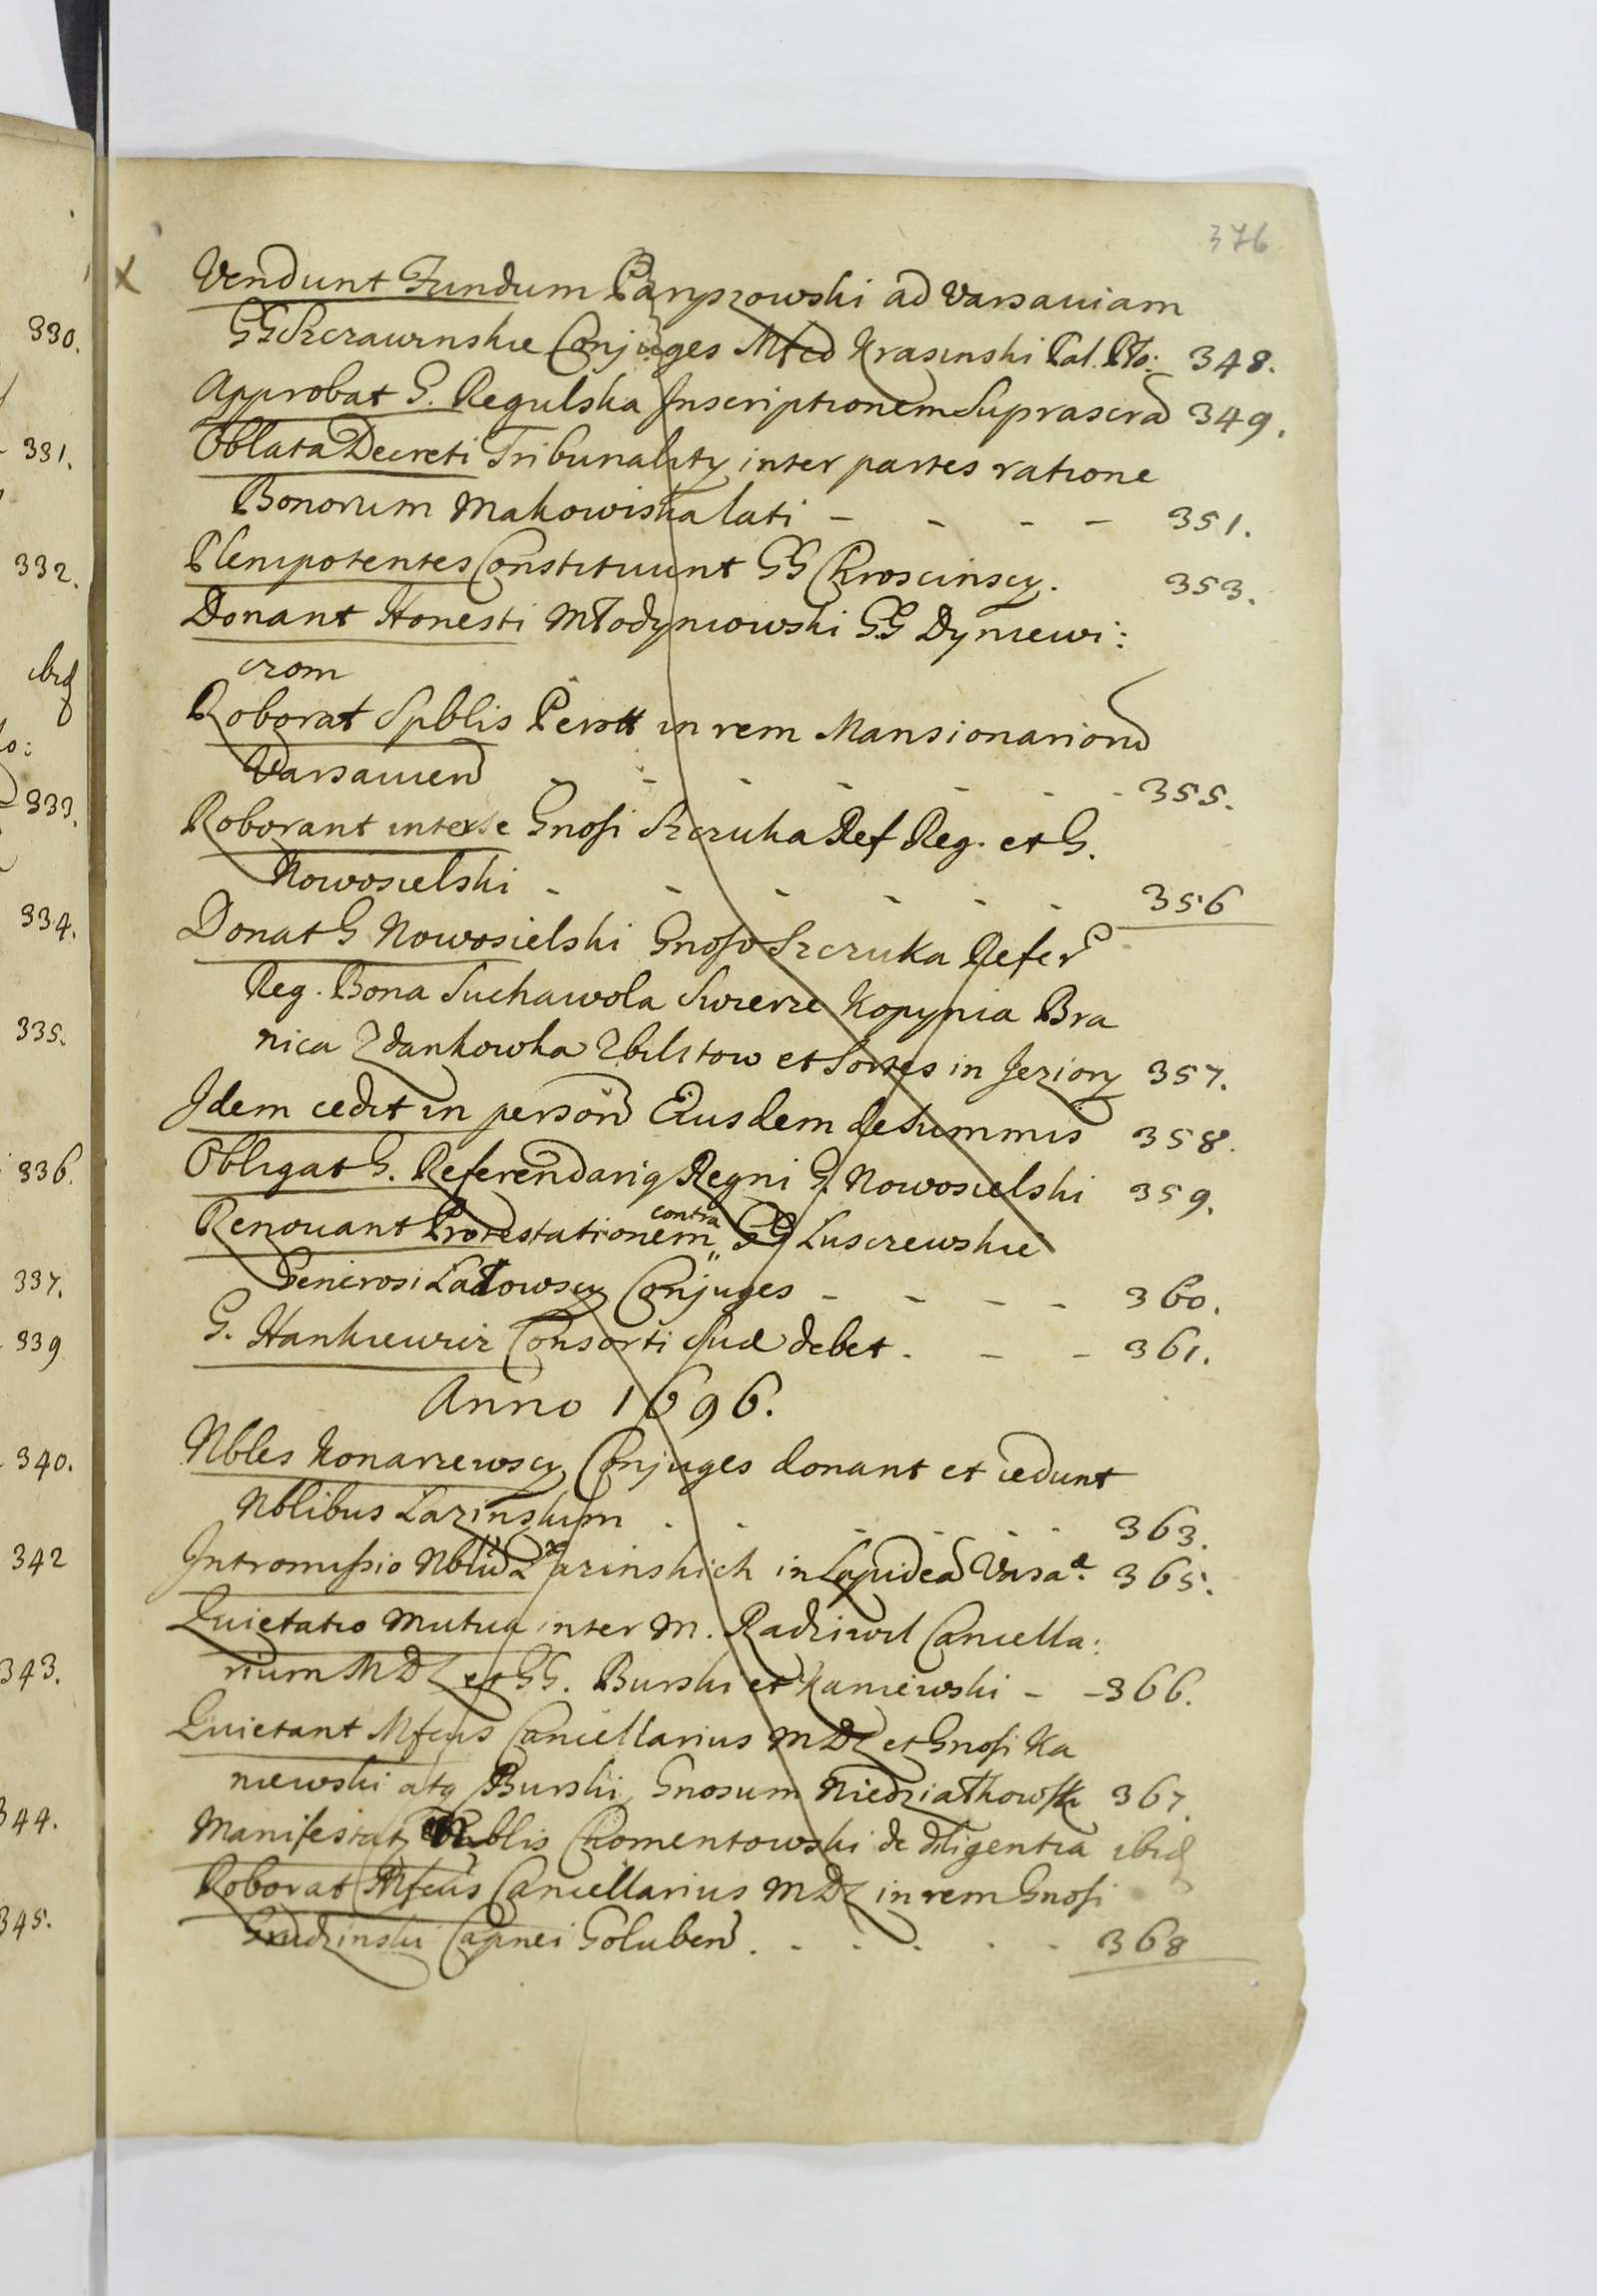 376
x Vendunt Fundum Paryszowski ad Varsaviam
GG Szczawinskie Conjuges Mfco Krasinski Pal. Pło: 348.
Approbat G. Regulska Inscriptionem Suprascra 349.
Oblata Decreti Tribunality inter partes ratione
Bonorum Makowiska lati - - - - 351.
Plenipotentes Constituunt GG Chroscinscy. 353.
Donant Honesti Młodyniowski GG Dyniewi:
czom
Roborat Spblis Perott in rem Mansionarion
Varsavien - - - - - - - 355.
Roborant inter se Gnosi Szczuka Ref Reg. et G.
Nowosielski - - - - - - 356
Donat G Nowosielski Gnoso Szczuka Refer
Reg. Bona Suchawola Swierze Kopynia Bra
nica Zdankowka Zbilitow et Sortes in Jeziory 357.
Idem cedit in person Eiusdem de Summis 358.
Obligat G. Referendariq Regni G. Nowosielski 359.
Renovant Protestationem contra GG Luszczewskie
Generosi Latowscy Conjuges - - - - 360.
G. Hankiewicz Consorti suæ debet. - - 361.
Anno 1696.
Nbles Konarzewscy Conjuges donant et cedunt
Nblibus Lazinskim . - - - - - 363.
Intromissio Nbliu Lazinskich in Lapidea Varsa. 365.
Quietatio Mutua inter M. Radziwil Cancella:
rium MDL et GG. Burski et Kaniewski - - 366.
Quietant Mfcus Cancellarius MDL et Gnosi Ka
niewski atq Burski Gnosum Niedziałkowsk 367.
Manifestat Nublis Chomentowski de diligentia ibid
Roborat Mfcus Cancellarius MDL in rem Gnosi
Grudzinski Capnei Goluben . . . . . . 368
330.
331.
332.
ibid
lo:
333.
334.
335.
336.
337.
339
340.
342
343.
344.
345.